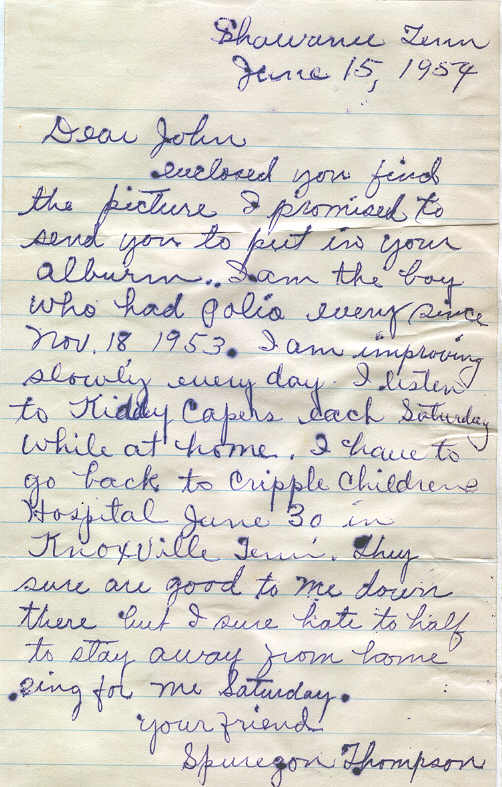 Shawanee Tenn
June 15, 1954
Dear John
enclosed you find
the picture I promised to
send you to put in your
alburm.. I am the boy
who had polio every since
Nov. 18 1953. I am improving
slowly every day. I listen
to Kiddy Capers each Saturday
while at home. I have to
go back to Cripple Childrens
Hospital June 30 in
Knoxville Tenn. They
sure are good to me down
there but I sure hate to half
to stay away from home
sing for me Saturday.
your friend
Spuregon Thompson